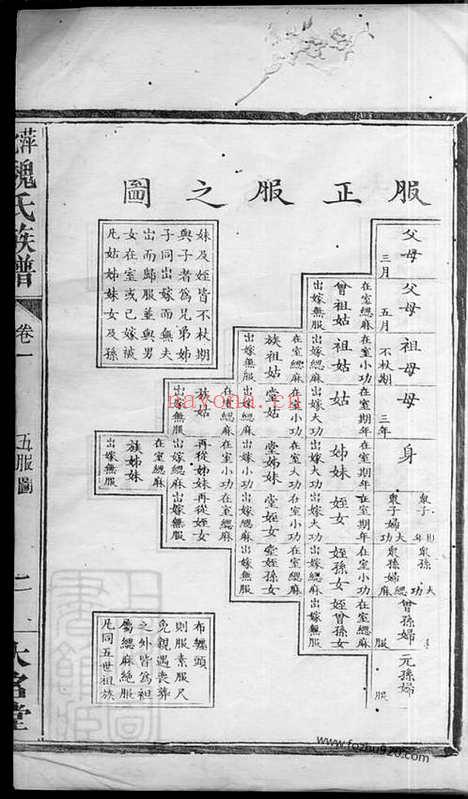 服正服之圖
父母
三月
父母
五月
祖母
不杖期
母
三年
身
眾子
眾子婦
眾孫
眾孫婦
曾孫婦
元孫婦
服
曾祖姑
在室緦麻
出嫁無服
祖姑
在室小功
出嫁緦麻
姑
在室期年
出嫁大功
姊妹
在室期年
出嫁大功
姪女
在室期年
出嫁大功
姪孫女
在室小功
出嫁緦麻
姪曾孫女
在室緦麻
出嫁無服
族祖姑
在室緦麻
出嫁無服
堂姑
在室小功
出嫁緦麻
堂姊妹
在室大功
出嫁小功
堂姪女
在室小功
出嫁緦麻
堂姪孫女
在室緦麻
出嫁無服
族姑
在室緦麻
出嫁無服
再從姊妹
在室小功
出嫁緦麻
再從姪女
在室緦麻
出嫁無服
族姊妹
在室緦麻
出嫁無服
凡姑姊妹女及孫
女在室或已嫁
出而歸服並與男
子同出嫁而無夫
與子者為兄弟姊
妹及姪皆不杖期
凡同五世祖族
屬緦麻絕服
之外皆為袒
免親遇喪葬
則服素服尺
布纏頭
萍魏氏族譜
卷一
五服圖
二
大名堂
nayona.cn
www.fozhu920.com